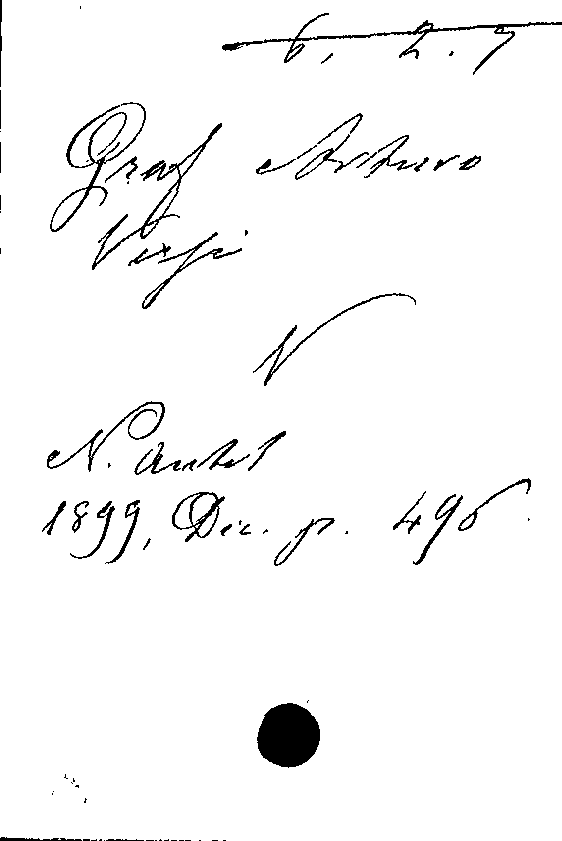 6. 2. 7
Graf Arturo
Versi
N. Antol
1899, Dic. p. 495